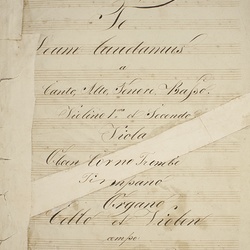 Te
Deum Laudamus
a
Canto, Alto, Tenore, Basso.
Violino Imo et Secondo
Viola
Oboen Corno Trombe
Timpano
Organo
Cello et Violon